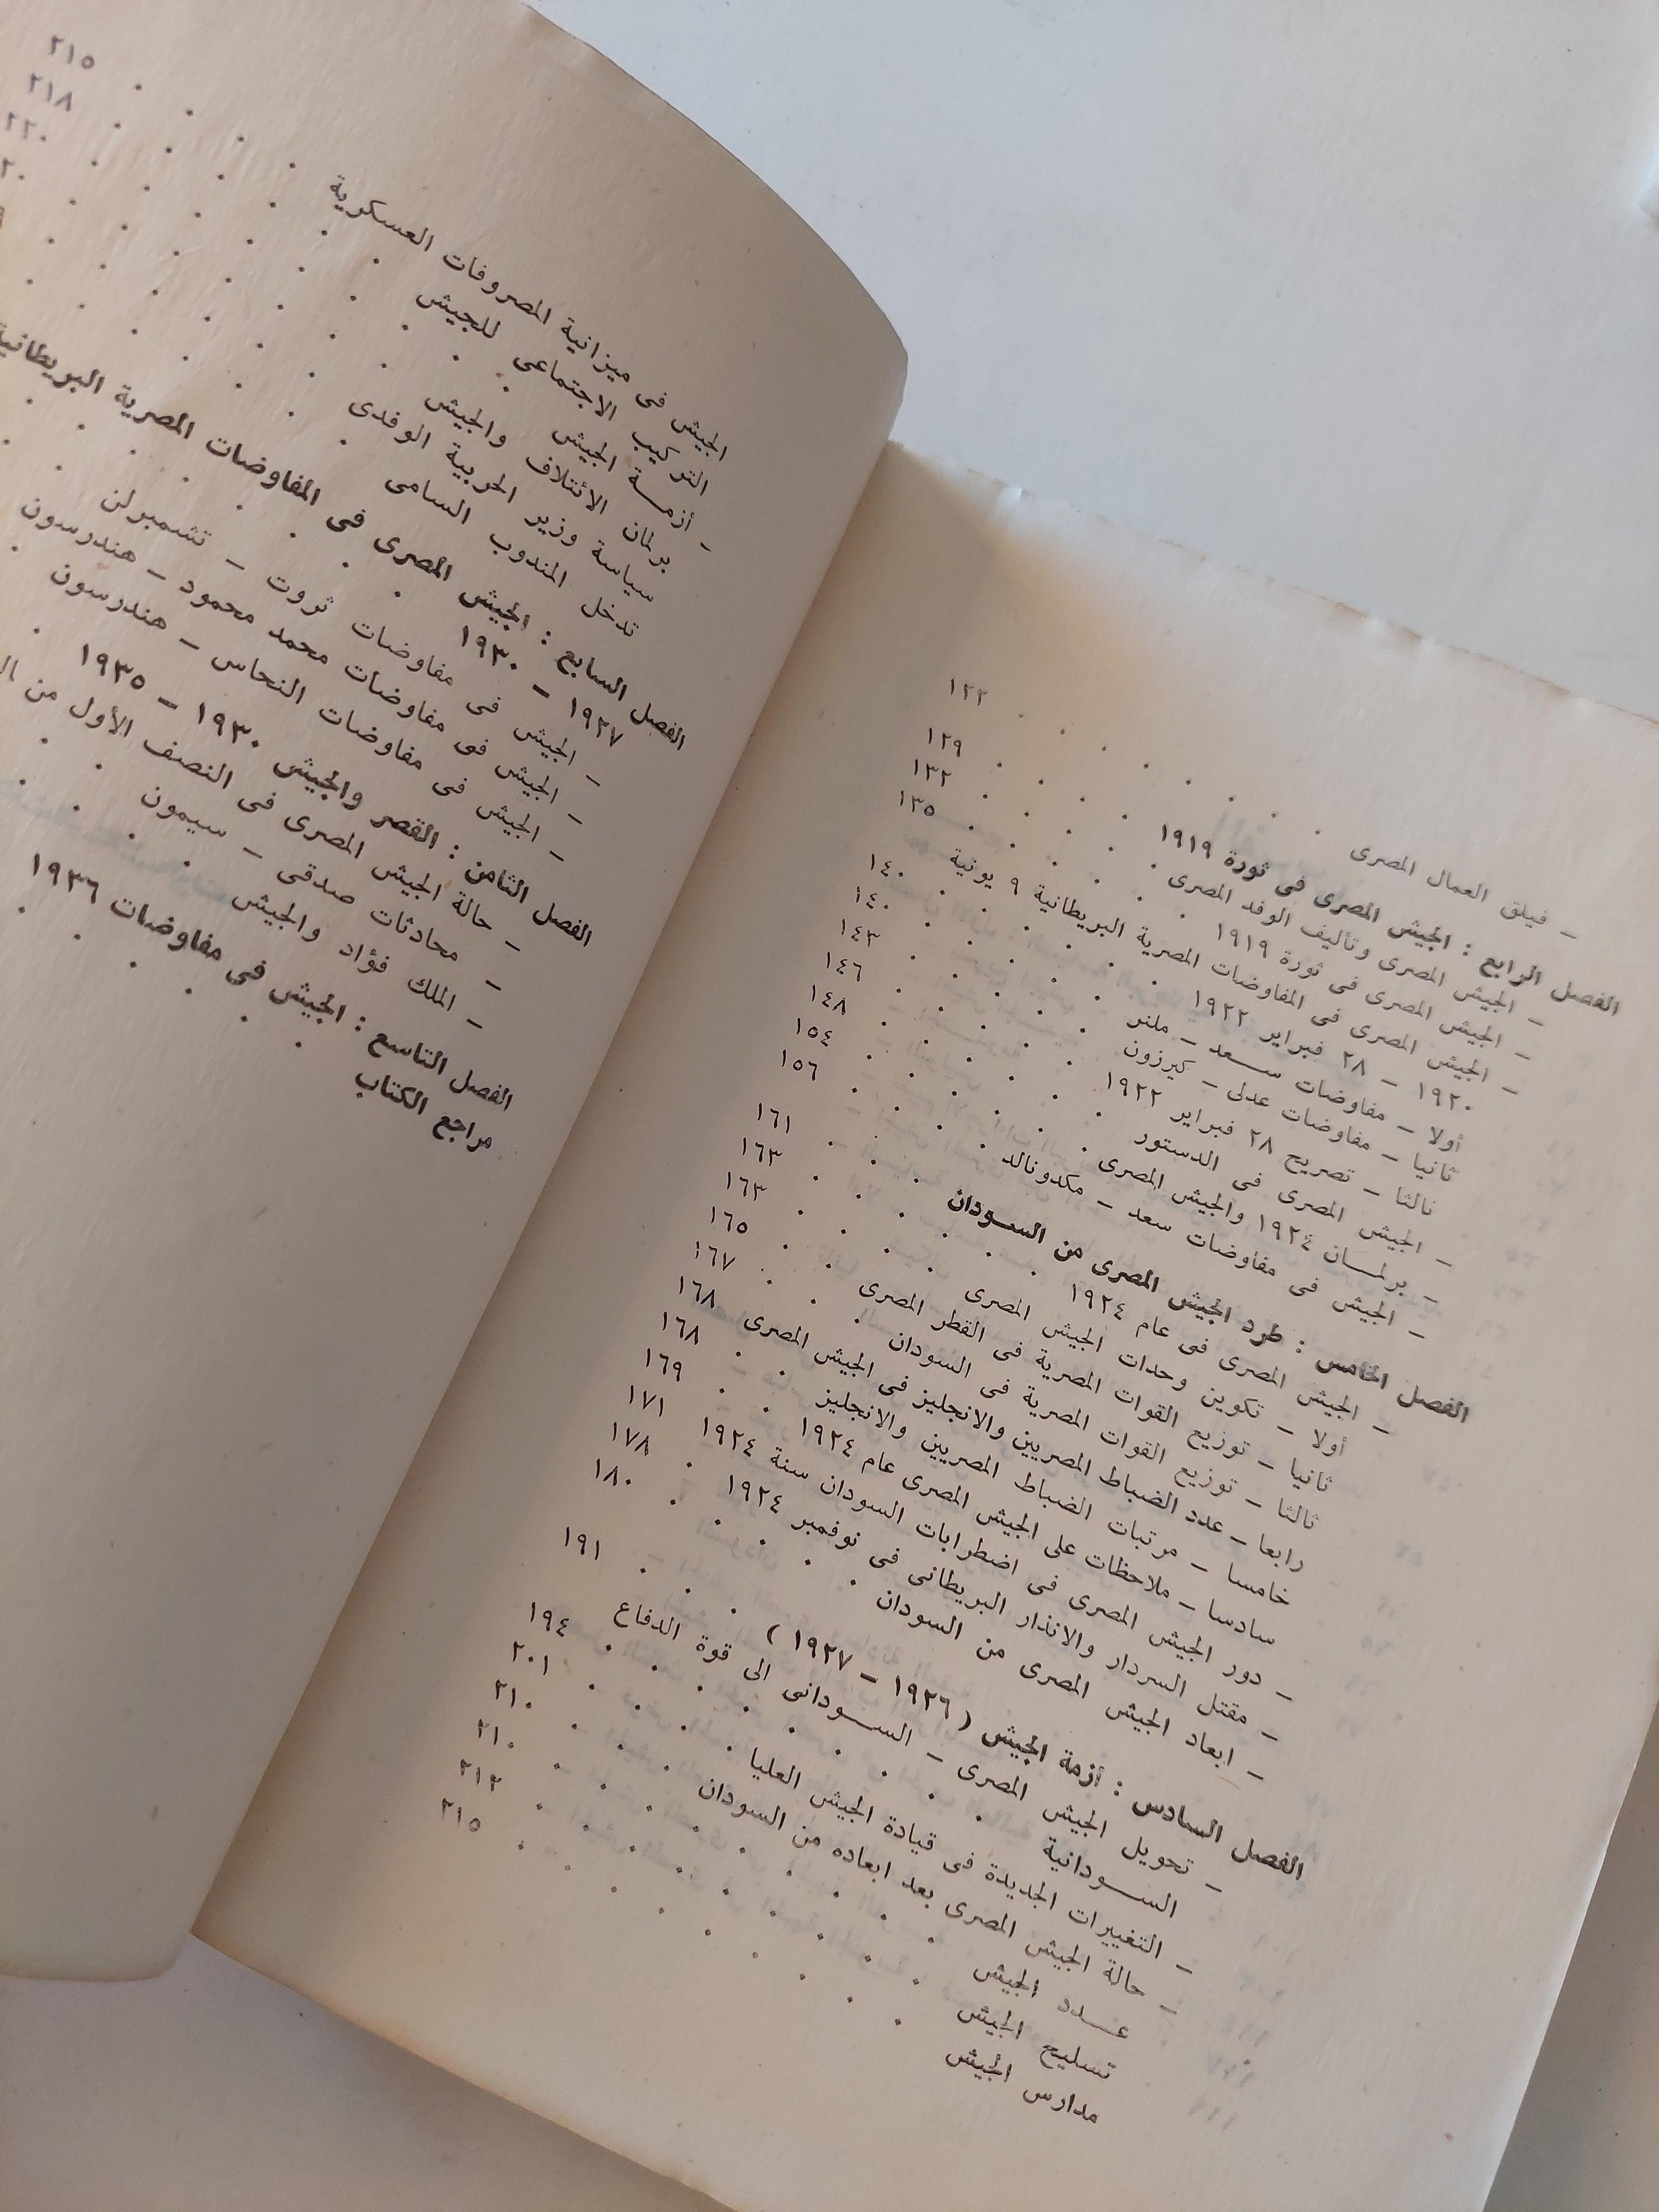 – فيلق العمال المصرى . . . . . . . . ١٢٢
الفصل الرابع : الجيش المصرى فى ثورة ١٩١٩
– الجيش المصرى وتأليف الوفد المصرى . . . . . ١٢٩
– الجيش المصرى فى ثورة ١٩١٩ . . . . . ١٣٢
– الجيش المصرى فى المفاوضات المصرية البريطانية ٩ يونية
١٩٢٠ – ٢٨ فبراير ١٩٢٢ . . . . . ١٣٥
أولا – مفاوضات سعد – ملنر . . . . . ١٤٠
ثانيا – مفاوضات عدلى – كيرزون . . . . . ١٤٠
ثالثا – تصريح ٢٨ فبراير ١٩٢٢ . . . . . ١٤٣
– الجيش المصرى فى الدستور . . . . . ١٤٦
– برلمان ١٩٢٤ والجيش المصرى . . . . . ١٤٨
– الجيش فى مفاوضات سعد – مكدونالد . . . . ١٥٤
الفصل الخامس : طرد الجيش المصرى من السودان ١٥٦
– الجيش المصرى فى عام ١٩٢٤ . . . . . ١٦١
أولا – تكوين وحدات الجيش المصرى . . . . ١٦٣
ثانيا – توزيع القوات المصرية فى القطر المصرى . . ١٦٣
ثالثا – توزيع القوات المصرية فى السودان . . ١٦٥
رابعا – عدد الضباط المصريين والانجليز فى الجيش المصرى ١٦٧
خامسا – مرتبات الضباط المصريين والانجليز . . ١٦٨
سادسا – ملاحظات على الجيش المصرى عام ١٩٢٤ . ١٦٨
– دور الجيش المصرى فى اضطرابات السودان سنة ١٩٢٤ ١٦٩
– مقتل السردار والانذار البريطانى فى نوفمبر ١٩٢٤ . ١٧١
– ابعاد الجيش المصرى من السودان . . . . ١٧٨
الفصل السادس : أزمة الجيش ( ١٩٢٦ – ١٩٢٧ ) ١٨٠
– تحويل الجيش المصرى – السودانى الى قوة الدفاع
السودانية . . . . . . . ١٩١
– التغييرات الجديدة فى قيادة الجيش العليا . . . ١٩٤
– حالة الجيش المصرى بعد ابعاده من السودان . . ٢٠١
عدد الجيش . . . . . . . ٢١٠
تسليح الجيش . . . . . . . ٢١٠
مدارس الجيش . . . . . . . ٢١٢
٢١٥
الجيش فى ميزانية المصروفات العسكرية . . . . ٢١٥
التركيب الاجتماعى للجيش . . . . . ٢١٨
– أزمة الجيش . . . . . . ٢٢٠
برلمان الائتلاف والجيش
سياسة وزير الحربية الوفدى
تدخل المندوب السامى
الفصل السابع : الجيش المصرى فى المفاوضات المصرية البريطانية
١٩٢٧ – ١٩٣٠
– الجيش فى مفاوضات ثروت – تشمبرلن
– الجيش فى مفاوضات محمد محمود – هندرسون
– الجيش فى مفاوضات النحاس – هندرسون
الفصل الثامن : القصر والجيش ١٩٣٠ – ١٩٣٥
– حالة الجيش المصرى فى النصف الأول من
– محادثات صدقى – سيمون
– الملك فؤاد والجيش
الفصل التاسع : الجيش فى مفاوضات ١٩٣٦
مراجع الكتاب